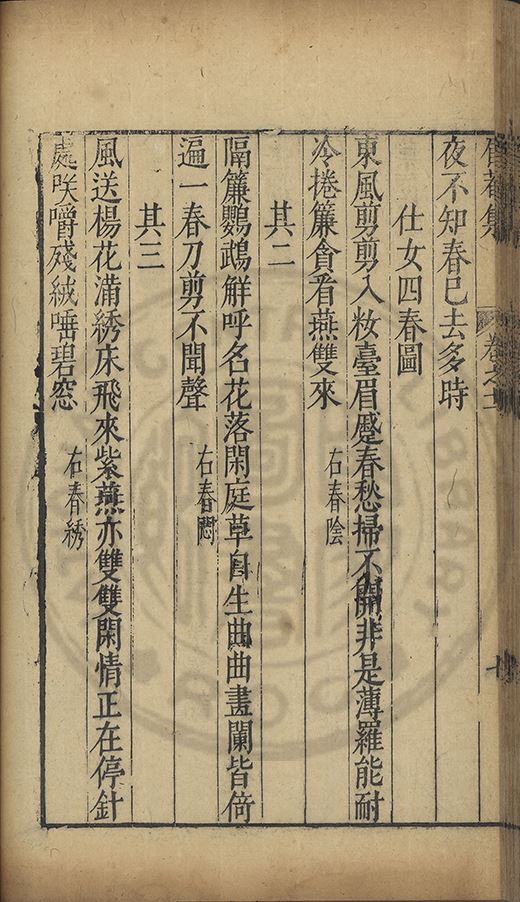 集 卷之
夜不知春已去多時
仕女四春圖
東風剪剪入妝臺眉蹙春愁掃不開非是薄羅能耐
冷捲簾貪看燕雙來 右春陰
其二
隔簾鸚鵡鮮呼名花落閑庭草自生曲曲畫闌皆倚
遍一春刀剪不聞聲 右春悶
其三
風送楊花滿綉床飛來紫燕亦雙雙閑情正在停針
處咲嚼殘絨唾碧窓 右春綉